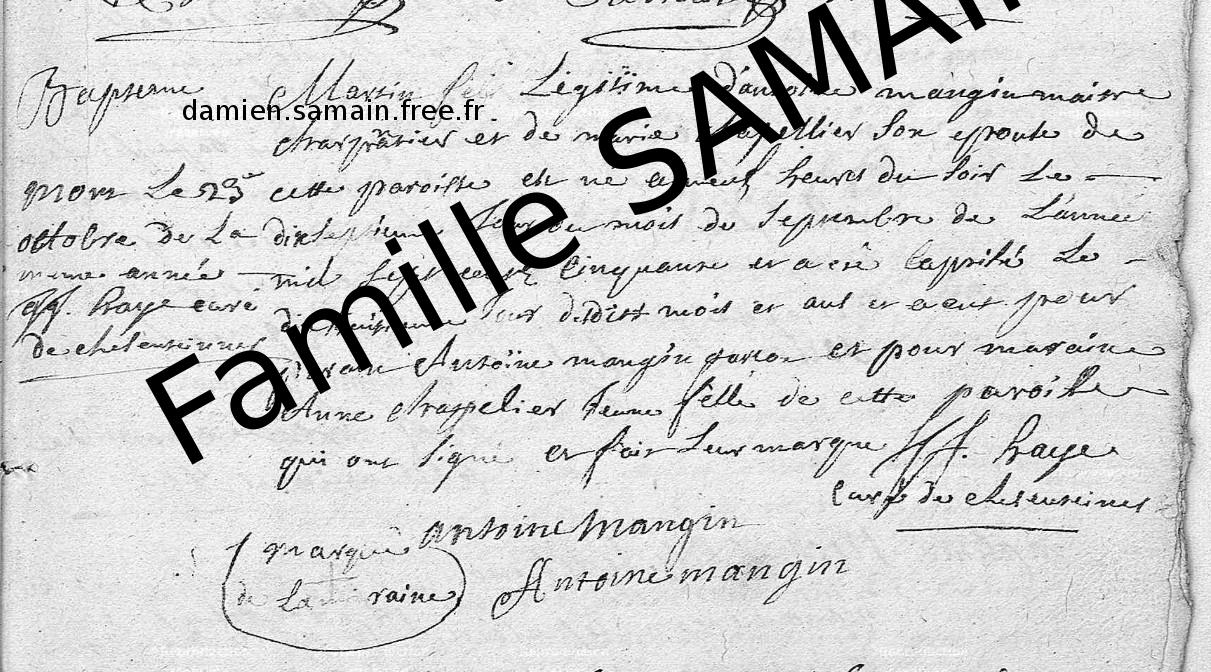 Bapteme
mort Le 23e
octobre de La
meme année
ff. haye curé
de cheleuseinnes
Martin fils Légitime d'antoine mangin maitre
charpantier et de marie chapellier son epouse de
cette paroisse est né a neuf heures du soir Le
dixseptieme Jour du mois de septembre de L'année
mil sept cent cinquante et a été baptisé Le
dixhuitieme Jour desdits mois et ans et a eut pour
parain Antoine mangin garcon et pour maraine
Anne chappelier Jeune fille de cette paroisse
qui ont signé et fait Leur marque ff. haye
curé de cheleuseinnes
marque
de La maraine
antoine mangin
Antoine mangin
damien.samain.free.fr
Famille SAMAIN